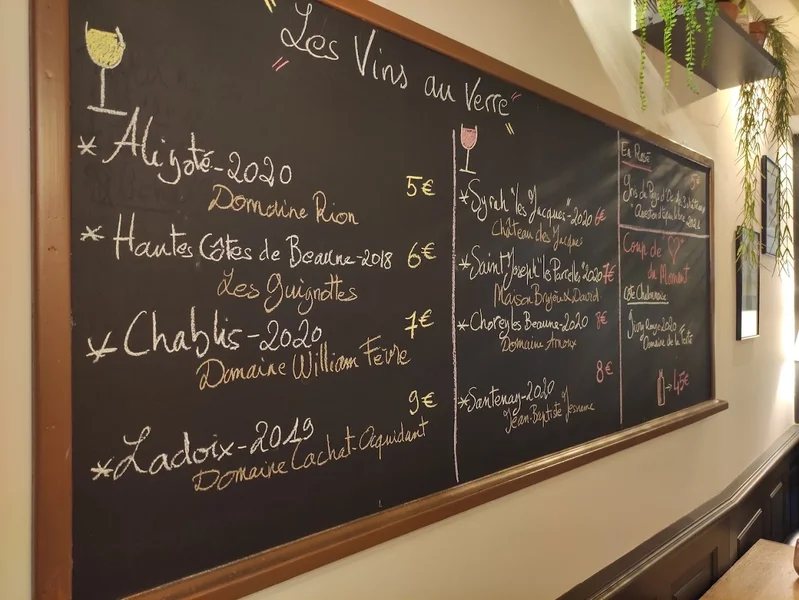 "Les Vins au Verre"
* Aligoté-2020
5€
Domaine Rion
* Hautes Côtes de Beaune-2018
6€
Les Guignottes
* Chablis-2020
7€
Domaine William Fèvre
9€
* Ladoix-2019
Domaine Cachat-Ocquidant
* Syrah "les Jacques"-2020 6€
Château des Jacques
* Saint Joseph "les Parcelles" 2020 7€
Maison David
* Chorey les Beaune-2020 8€
Domaine Arnoux
8€
* Santenay-2020
Jean-Baptiste
En Rosé
5€
Gris du Pays d'Oc
2021
Coup de ♡
du Moment
Côte Chalonnaise
Givry Rouge 2020
Domaine de la
→ 45€